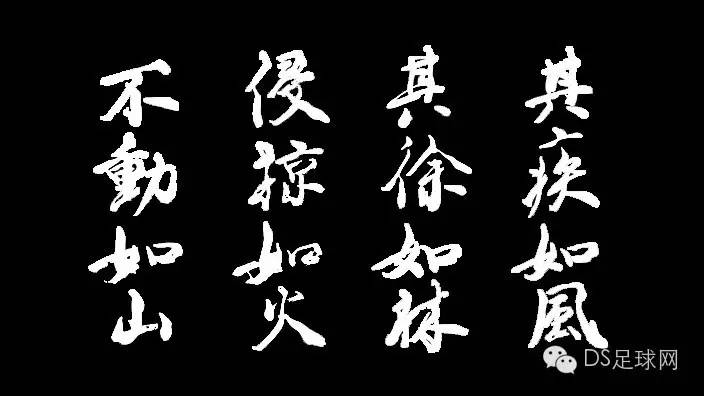 其疾如風
其徐如林
侵掠如火
不動如山
DS足球网